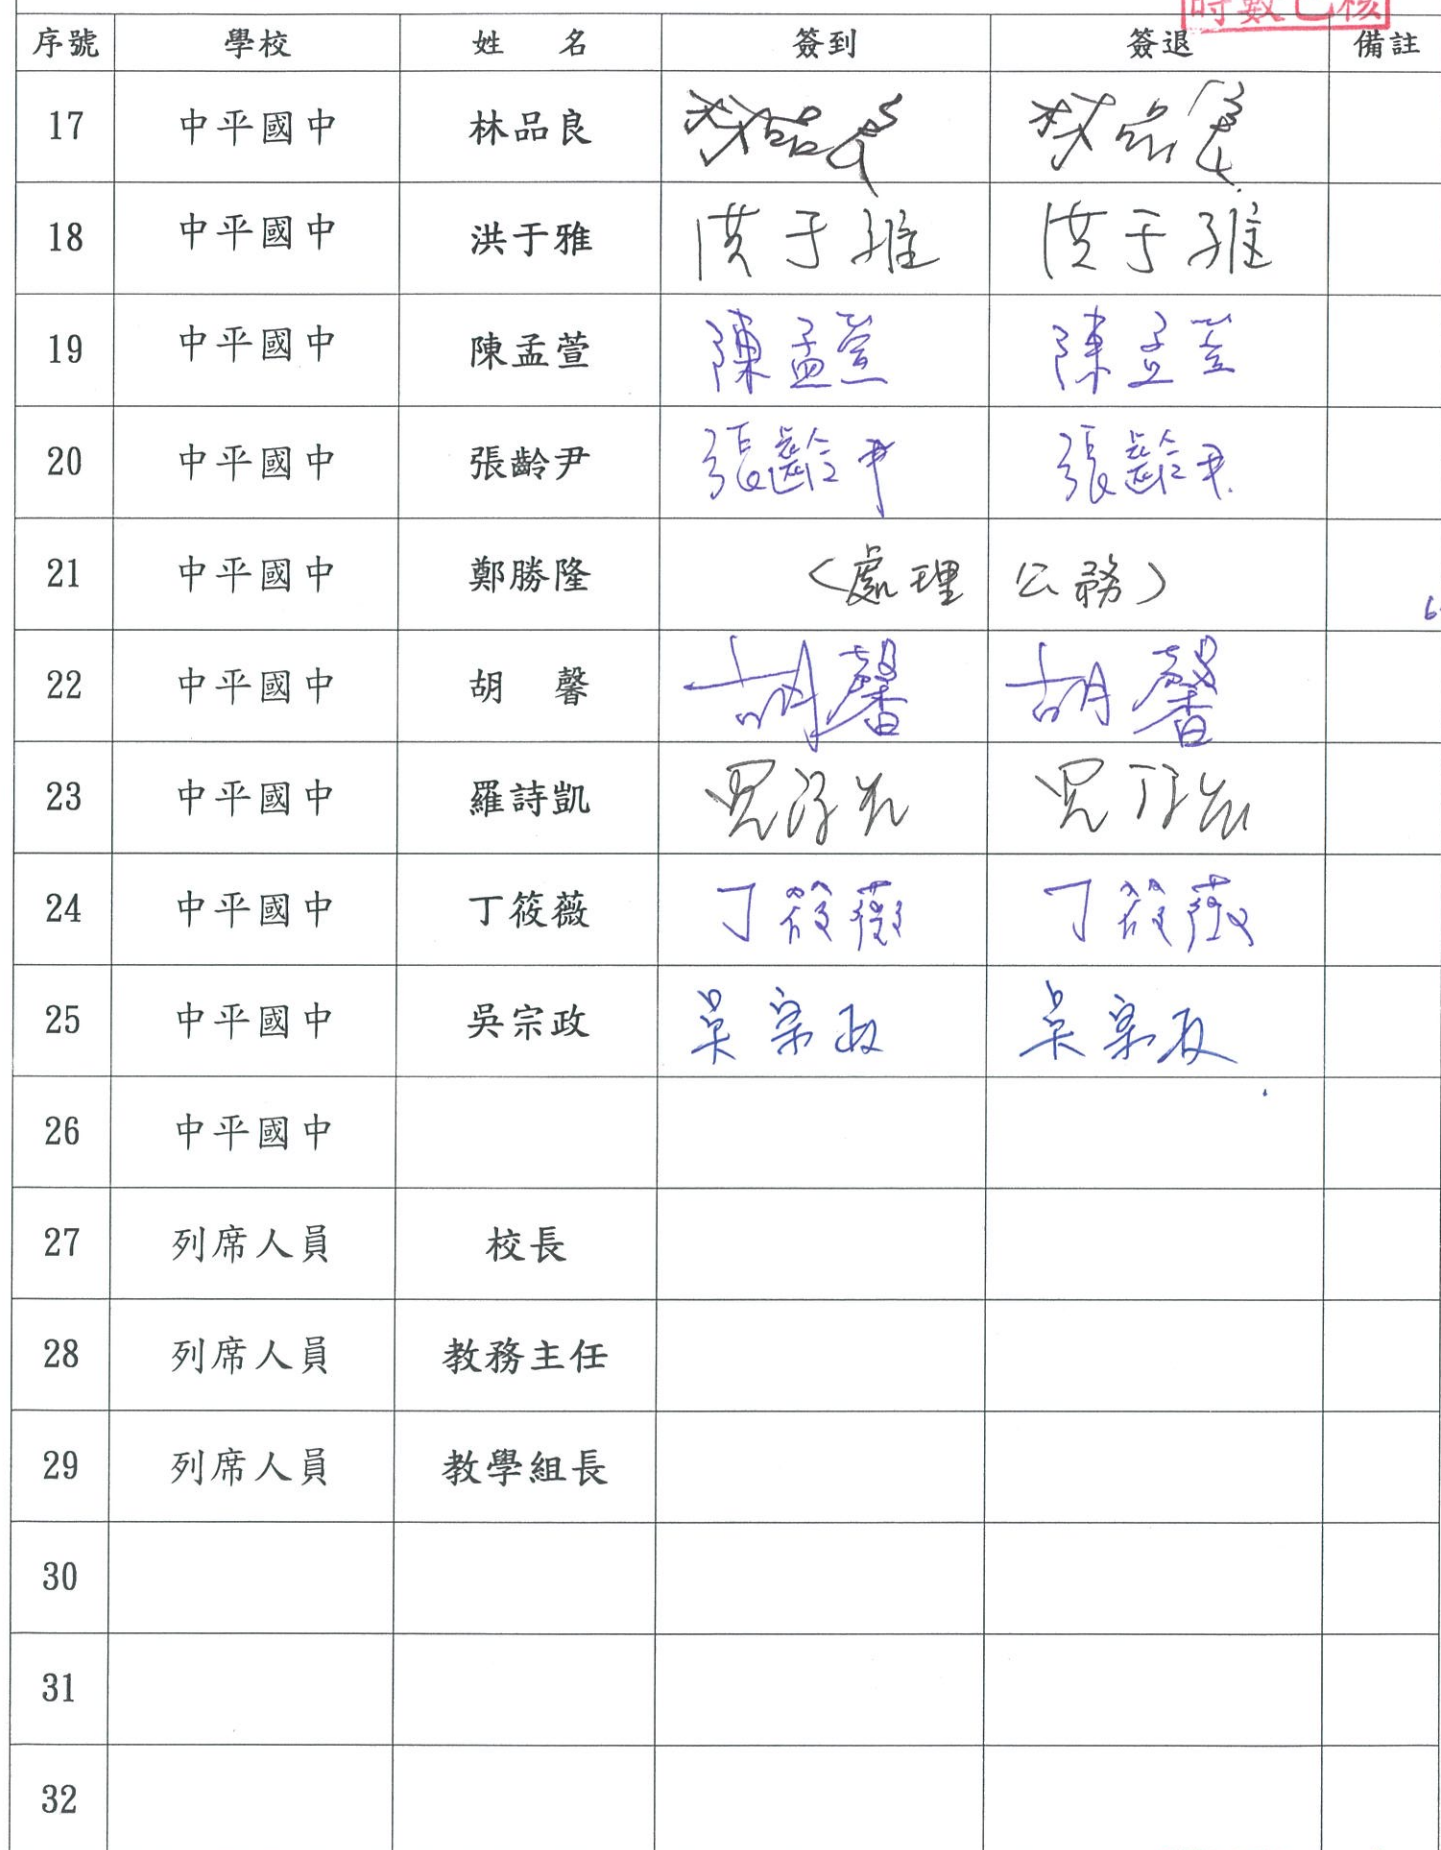 時數已核
序號 學校 姓 名 簽到 簽退 備註
17 中平國中 林品良 林品良 林品良
18 中平國中 洪于雅 洪于雅 洪于雅
19 中平國中 陳孟萱 陳孟萱 陳孟萱
20 中平國中 張齡尹 張齡尹 張齡尹
21 中平國中 鄭勝隆 (處理 公務)
22 中平國中 胡 馨 胡馨 胡馨
23 中平國中 羅詩凱
24 中平國中 丁筱薇 丁筱薇 丁筱薇
25 中平國中 吳宗政 吳宗政 吳宗政
26 中平國中
27 列席人員 校長
28 列席人員 教務主任
29 列席人員 教學組長
30
31
32